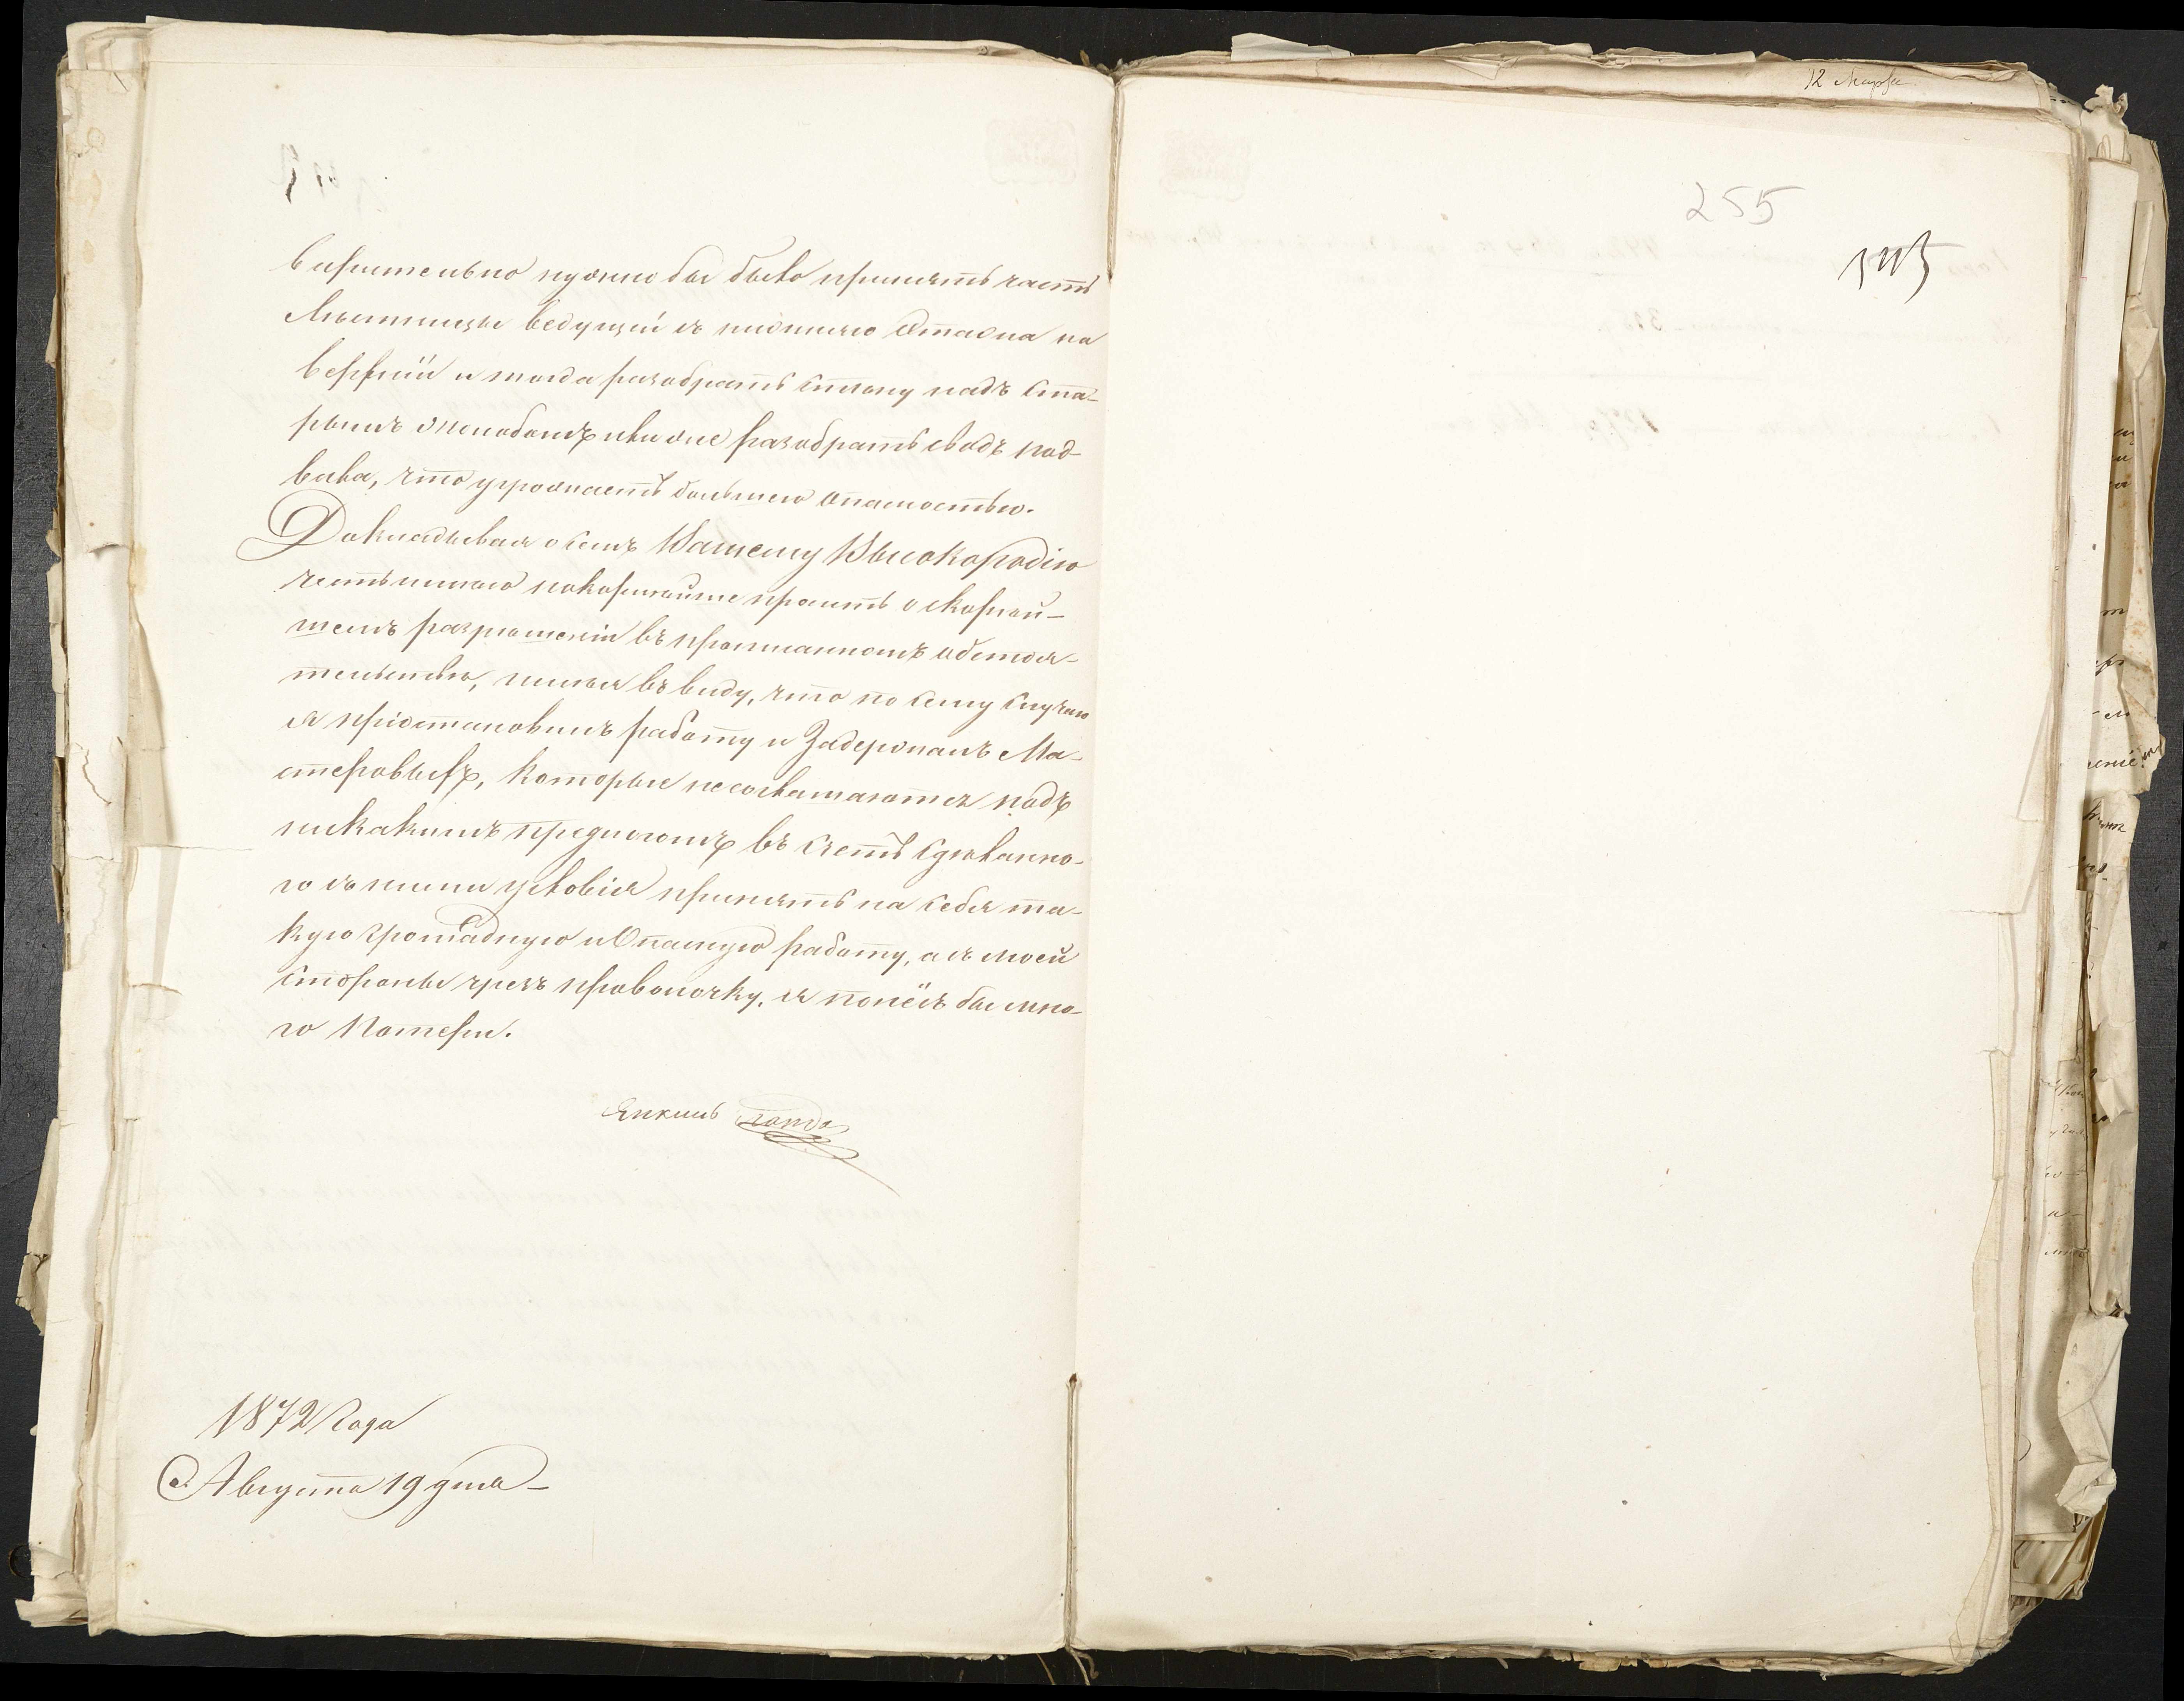 варительно нужно бы было принять часть
Лѣстницы ведущей съ нижняго Этажа на
верхній и тогда разобрать стѣну надъ ста-
рымъ жолобомъ или же разобрать сводъ под-
вала, что угрожаетъ большею опасностью.
Докладывая о семъ Вашему Высокородію
честь имѣю покорнѣйше просить о скорѣй-
шемъ разрѣшеніи въ прописанномъ обстоя-
тельствѣ, имѣя въ виду, что по сему случаю
я пріостановилъ работу и Задержалъ Ма-
стеровыхъ, которые не соглашаются подъ
никакимъ предлогомъ въ счетъ сдѣланно-
го съ ними условія принять на себя та-
кую громадную и Опасную работу, а съ моей
стороны чрезъ проволочку, я понёсъ бы мно-
го Потери.
Янкель Ланда
1872 Года
Августа 19 дня
12 Марта
255